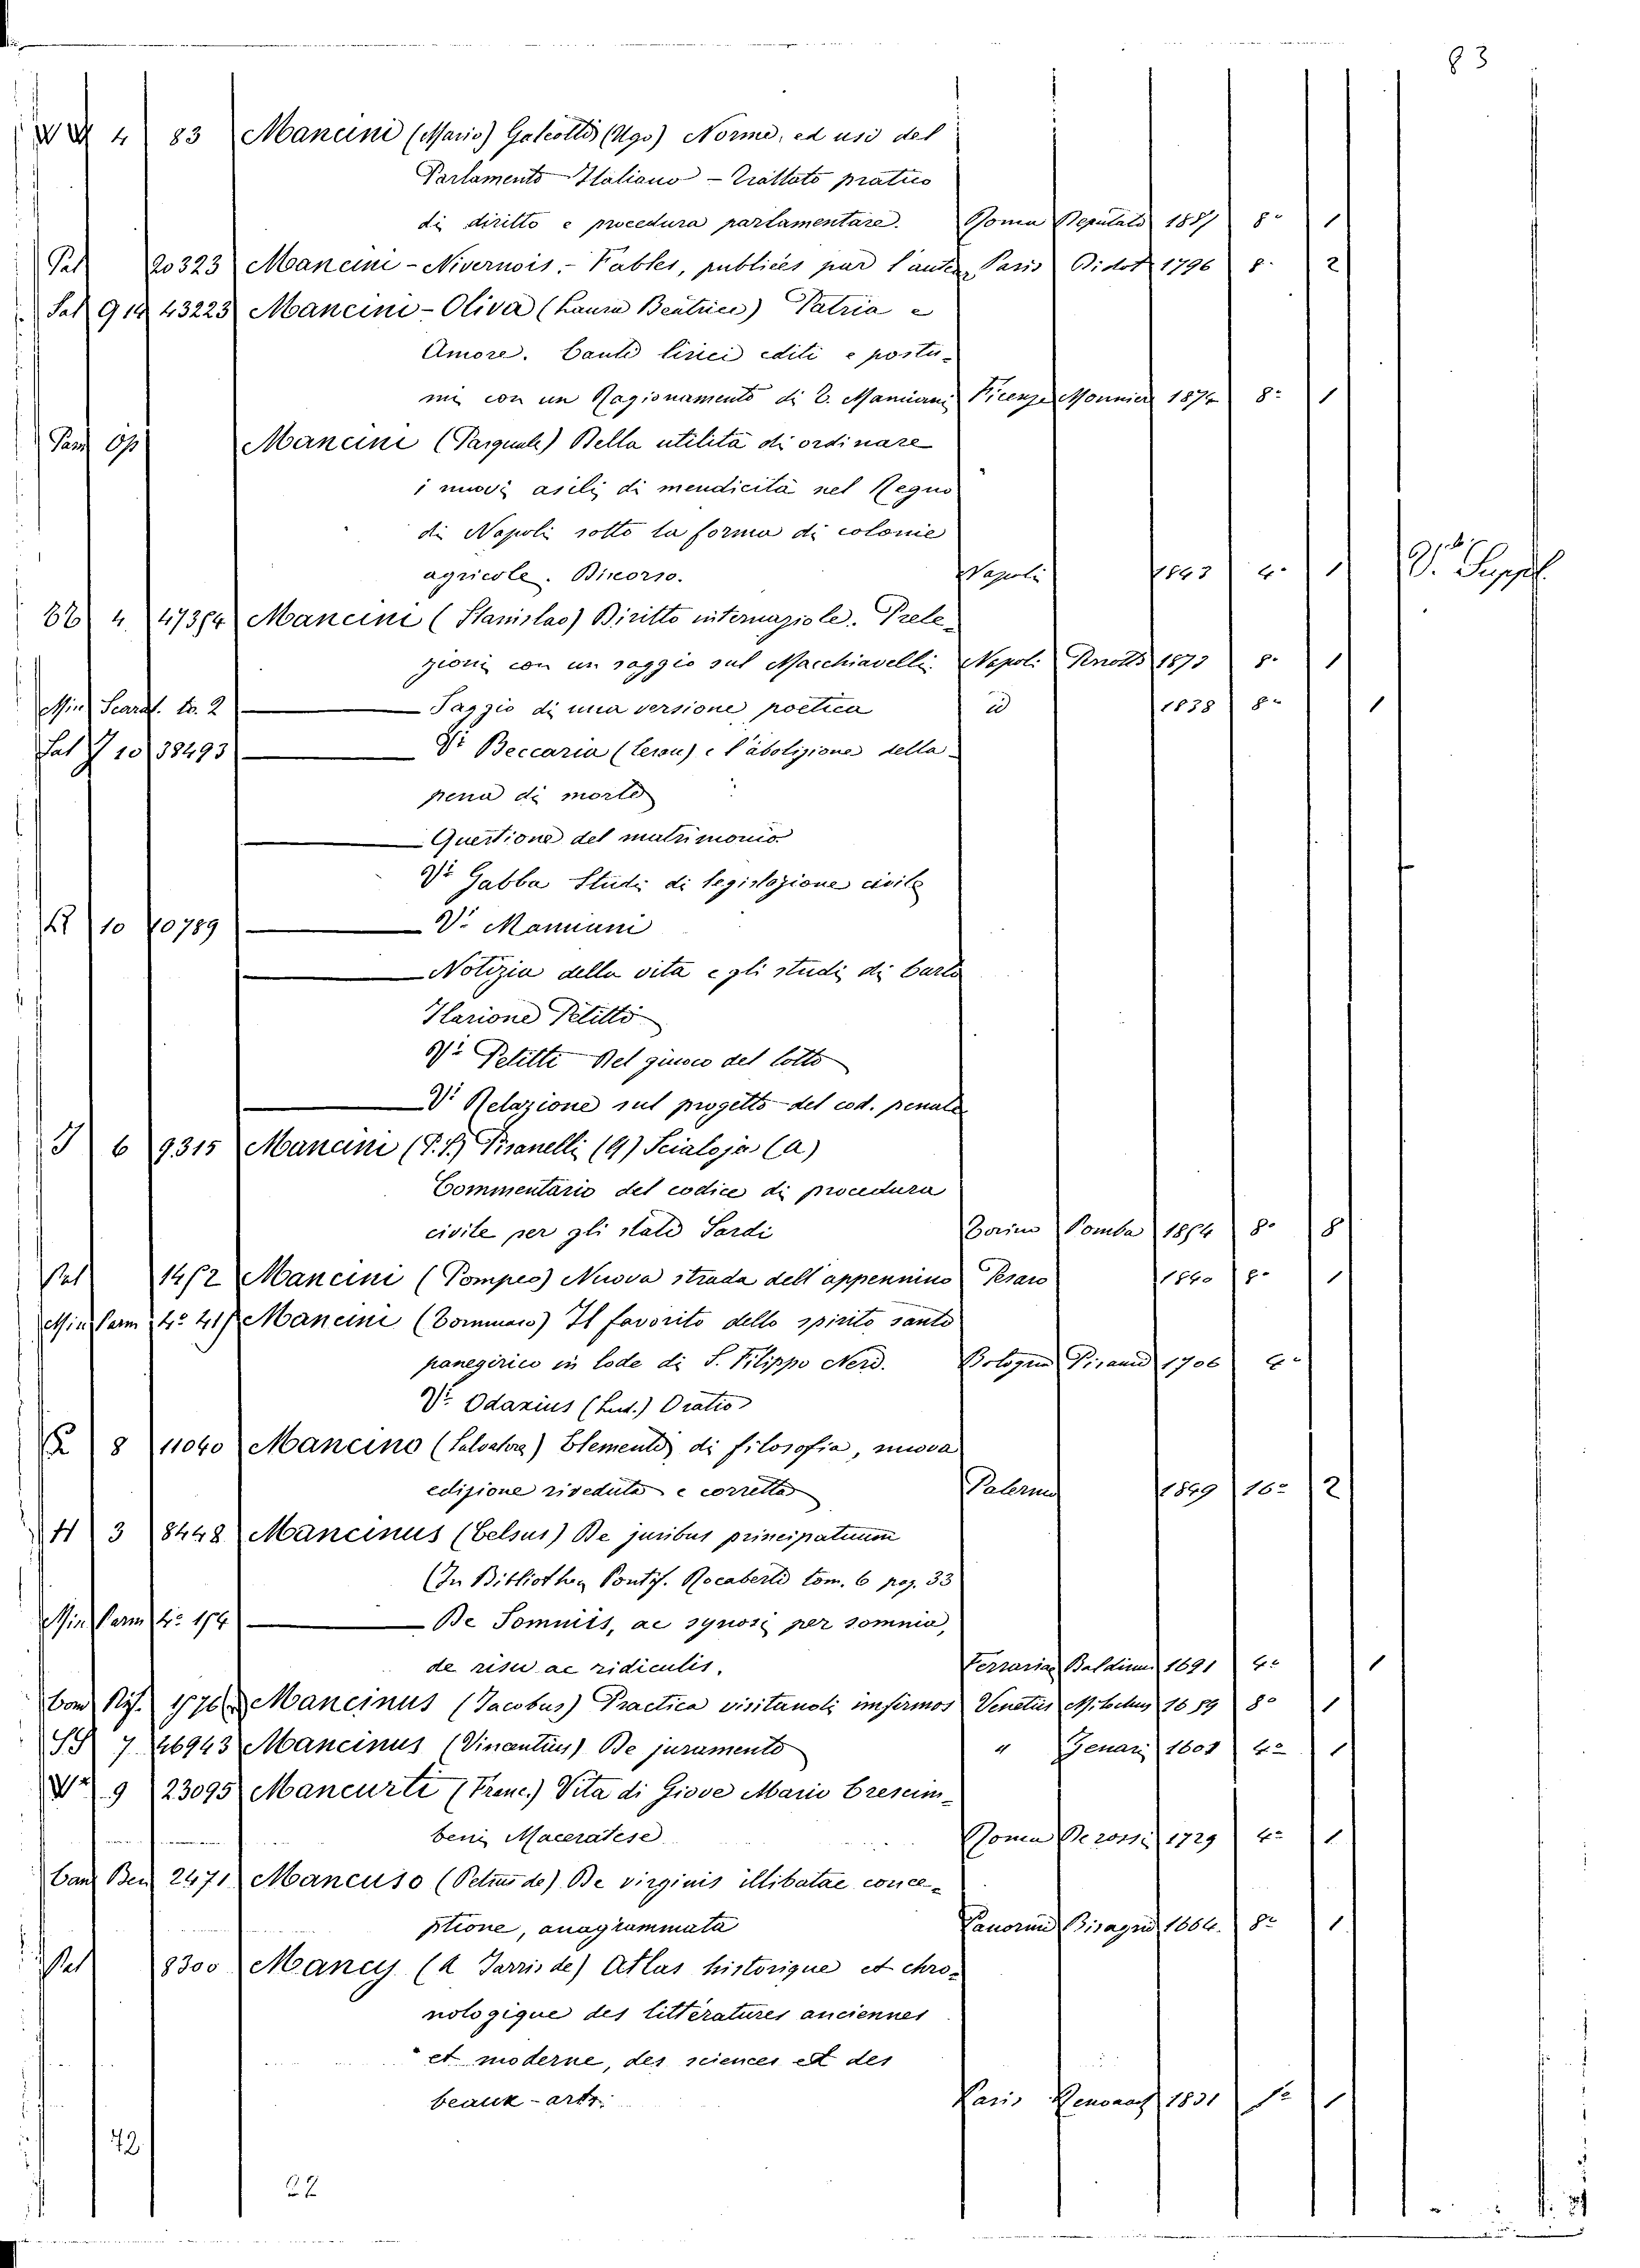 83
4 83 Mancini (Mario) Galeotti (Ugo) Norme, ed usi del
Parlamento Italiano - Trattato pratico
di diritto e procedura parlamentare. Roma Deputati 1887 8º 1
Sal 20323 Mancini-Nivernois. - Fables, publiées par l'auteur Paris Didot 1796 8º 2
Sal 9 14 43223 Mancini-Oliva (Laura Beatrice) Patria e
Amore. Canti lirici editi e postu-
mi con un Ragionamento di T. Mamiani Firenze Monnier 1874 8º 1
Op Mancini (Pasquale) Della utilità di ordinare
i nuovi asili di mendicità nel Regno
di Napoli sotto la forma di colonie
agricole. Discorso. Napoli 1843 4º 1 V. Suppl.
4 Mancini (Stanislao) Diritto internaziole. Prele-
zioni con un saggio sul Macchiavelli. Napoli 1873 8º 1
Min Scaraf. to. 2 Saggio di una versione poetica id 1838 8º 1
Sal 10 38493 Vi Beccaria (Cesare) e l'abolizione della
pena di morte
Questione del matrimonio
Vi Gabba Studi di legislazione civile
10 10789 V. Mamiani
Notizia della vita e gli studi di Carlo
Ilarione Petitti
Vi Petitti Del giuoco del lotto
Vi Relazione sul progetto del cod. penale
J 6 9315 Mancini (P.S.) Pisanelli (G) Scialoja (A)
Commentario del codice di procedura
civile per gli stati Sardi Torino Pomba 1854 8º 8
Sal 1452 Mancini (Pompeo) Nuova strada dell'appennino Pesaro 1840 8º 1
Min farm 4º 41 Mancini (Tommaso) Il favorito dello spirito santo
panegirico in lode di S. Filippo Neri. Bologna Pisarri 1706 4º
Vi Odaxius (Lud.) Oratio
8 11040 Mancino (Salvatore) Elementi di filosofia, nuova
edizione riveduta e corretta Palermo 1849 16º 2
H 3 8448 Mancinus (Celsus) De juribus principatuum
(In Bibliotheca Pontif. Rocaberti tom. 6 pag. 33
Min farm 4º 154 De Somniis, ac synosi per somnia,
de risu ac ridiculis. Ferrariae Baldinus 1691 4º 1
Mancinus (Jacobus) Practica visitandi infirmos Venetiis Milochus 1659 8º 1
SS 7 46943 Mancinus (Vincentius) De juramento " Zenari 1601 4º 1
9 23095 Mancurti (Franc.) Vita di Giove Mario Crescim-
beni Maceratese Roma De rossi 1729 4º 1
Can Ben 2471 Mancuso (Petrus de) De virginis illibatae conce-
ptione, anagrammata Panormi Bisagni 1664. 8º 1
Sal 8300 Mancy (A Jarris de) Atlas historique et chro-
nologique des littératures anciennes
et moderne, des sciences et des
beaux-arts. Paris Renouard 1831 1
42
22